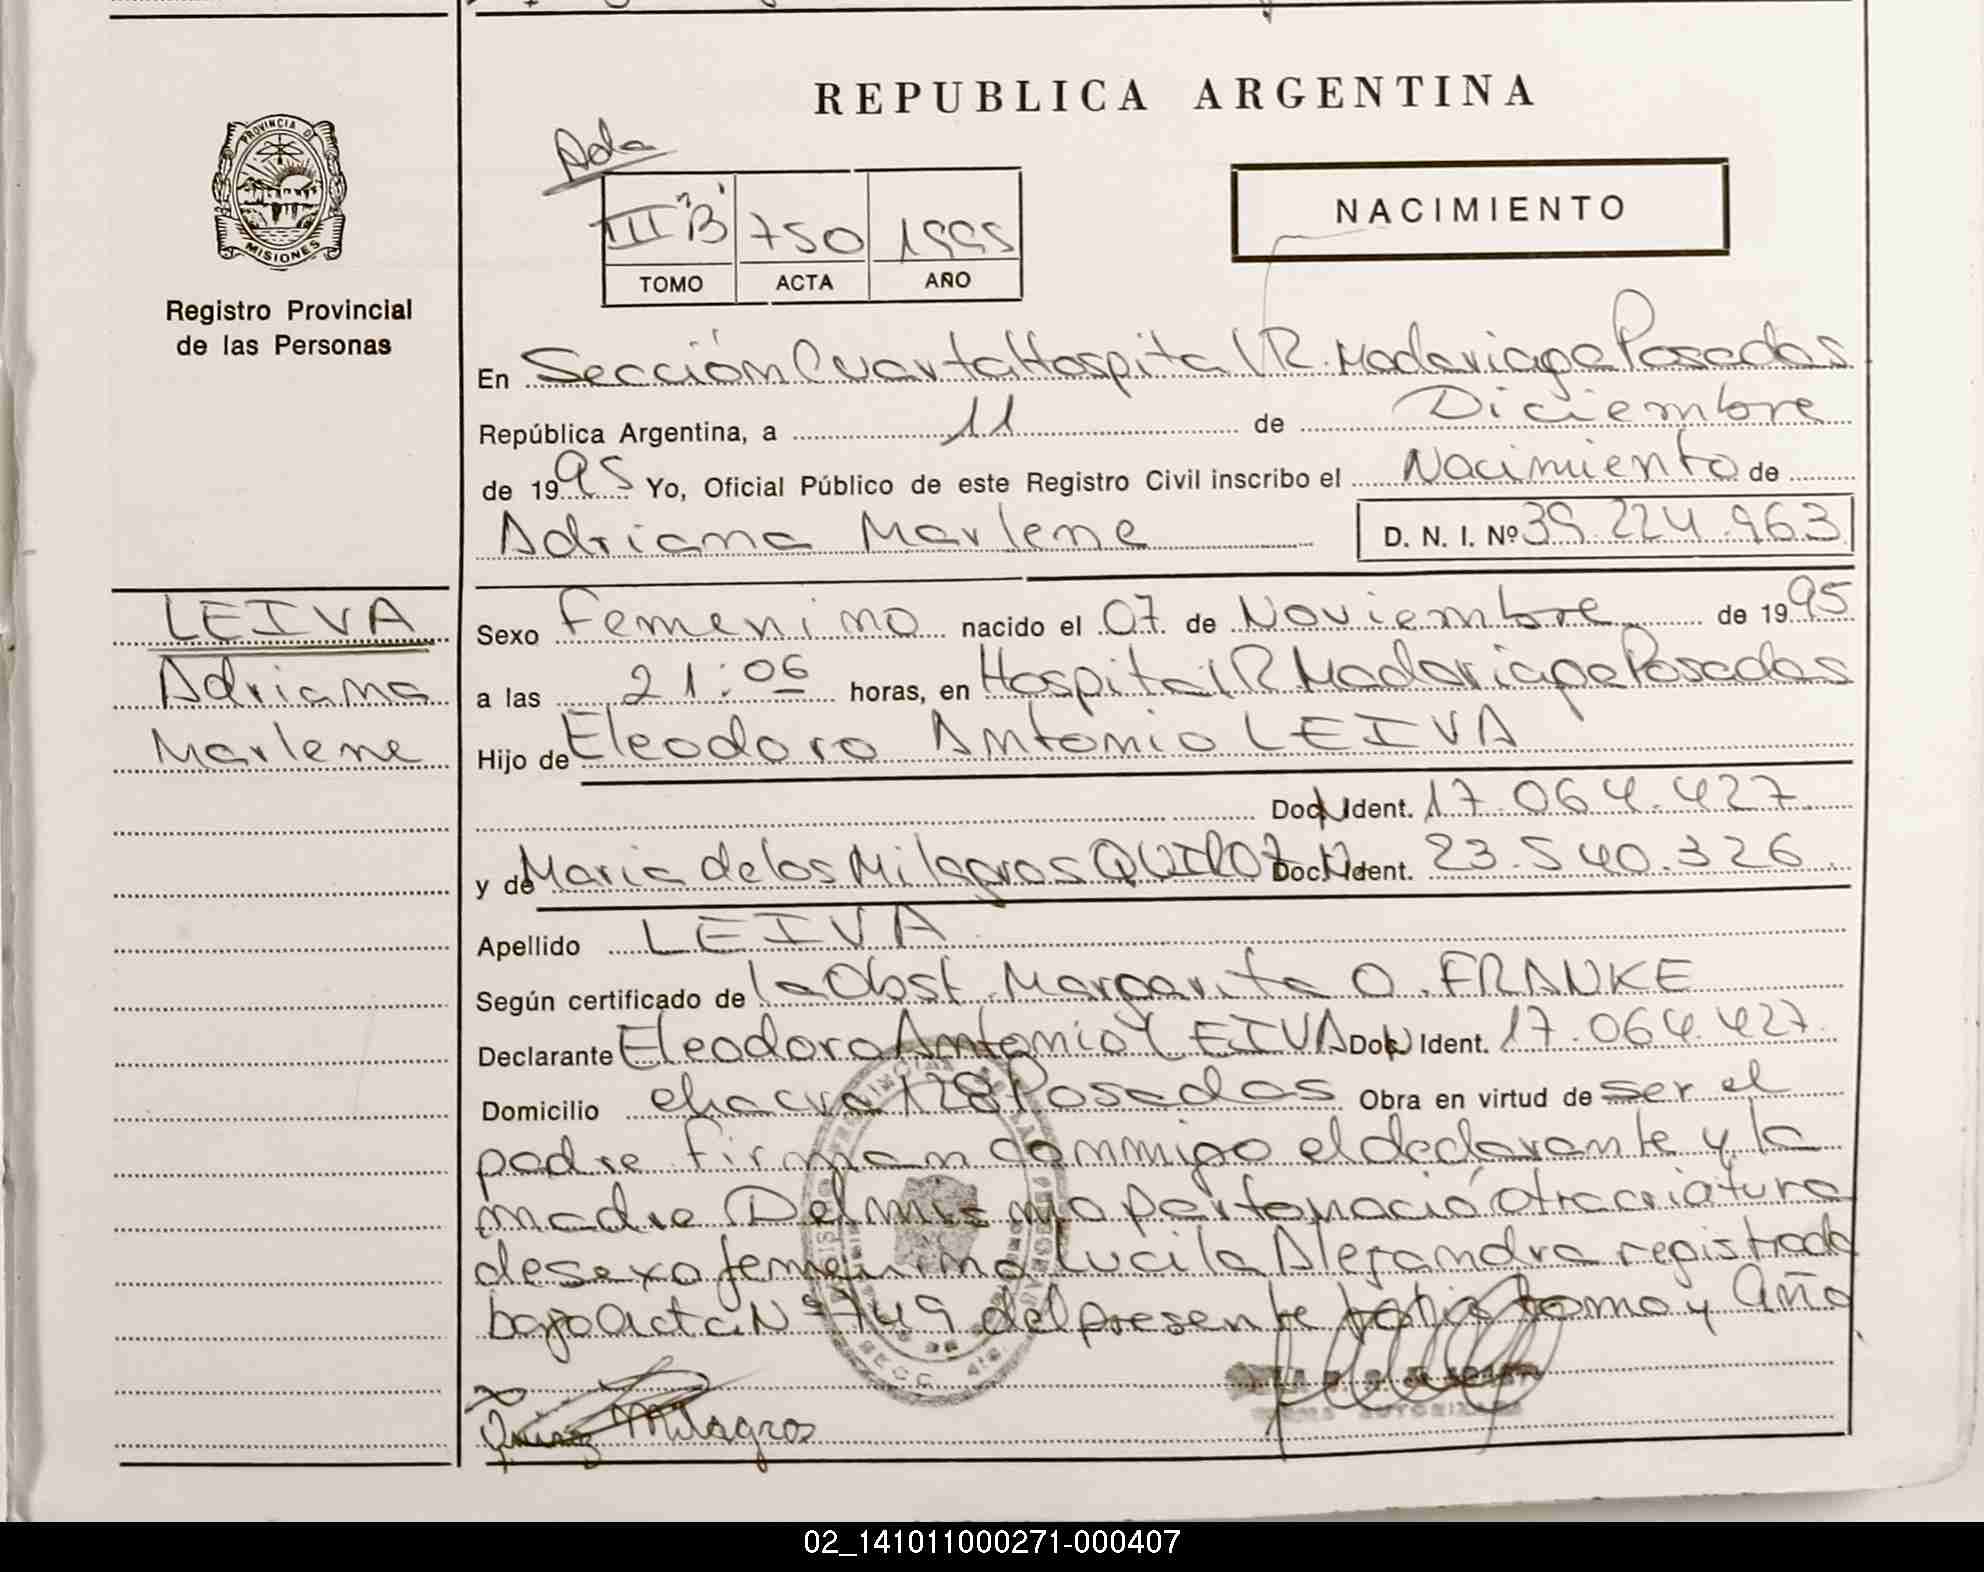 REPUBLICA ARGENTINA
PROVINCIA DE
MISIONES
Registro Provincial
de las Personas
Ada
III "B" 750 1995
TOMO ACTA AÑO
NACIMIENTO
En Sección Cuarta Hospital R. Madariaga Posadas
República Argentina, a 11 de Diciembre
de 1995 Yo, Oficial Público de este Registro Civil inscribo el Nacimiento de
Adriana Marlene D. N. I. Nº 39.224.963
LEIVA
Adriana
Marlene
Sexo Femenino nacido el 07 de Noviembre de 1995
a las 21:06 horas, en Hospital R Madariaga Posadas
Hijo de Eleodoro Antonio LEIVA
Doc. Ident. 17.064.427
y de Maria de los Milagros QUIROZ Doc. Ident. 23.540.326
Apellido LEIVA
Según certificado de la Obst. Margarita O. FRANKE
Declarante Eleodoro Antonio LEIVA Doc. Ident. 17.064.427
Domicilio chacra 128 Posadas Obra en virtud de ser el
padre firman conmigo el declarante y la
madre Del mismo parto nació otra criatura
de sexo femenino Lucila Alejandra registrada
bajo acta Nº 749 del presente tomo y año
Quiroz Milagros
02_141011000271-000407